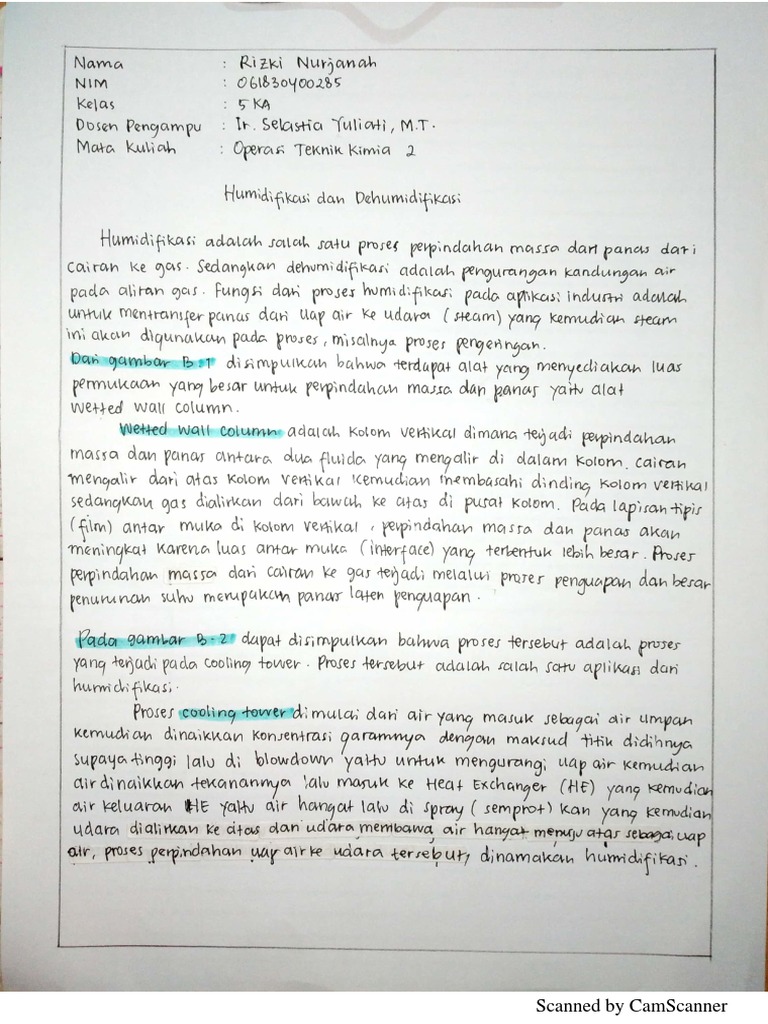 Nama : Rizki Nurjanah
NIM : 061830400285
Kelas : 5 KA
Dosen Pengampu : Ir. Selastia Yuliati, M.T.
Mata Kuliah : Operasi Teknik Kimia 2
Humidifikasi dan Dehumidifikasi
Humidifikasi adalah salah satu proses perpindahan massa dan panas dari
cairan ke gas. Sedangkan dehumidifikasi adalah pengurangan kandungan air
pada aliran gas. Fungsi dari proses humidifikasi pada aplikasi industri adalah
untuk mentransfer panas dari uap air ke udara (steam) yang kemudian steam
ini akan digunakan pada proses, misalnya proses pengeringan.
Dari gambar B-1 disimpulkan bahwa terdapat alat yang menyediakan luas
permukaan yang besar untuk perpindahan massa dan panas yaitu alat
Wetted wall column.
Wetted wall column adalah kolom vertikal dimana terjadi perpindahan
massa dan panas antara dua fluida yang mengalir di dalam kolom. Cairan
mengalir dari atas kolom vertikal kemudian membasahi dinding kolom vertikal
sedangkan gas dialirkan dari bawah ke atas di pusat kolom. Pada lapisan tipis
(film) antar muka di kolom vertikal, perpindahan massa dan panas akan
meningkat karena luas antar muka (interface) yang terbentuk lebih besar. Proses
perpindahan massa dari cairan ke gas terjadi melalui proses penguapan dan besar
penurunan suhu merupakan panas laten penguapan.
Pada gambar B-2 dapat disimpulkan bahwa proses tersebut adalah proses
yang terjadi pada cooling tower. Proses tersebut adalah salah satu aplikasi dari
humidifikasi.
Proses cooling tower dimulai dari air yang masuk sebagai air umpan
kemudian dinaikkan konsentrasi garamnya dengan maksud titik didihnya
supaya tinggi lalu di blowdown yaitu untuk mengurangi uap air kemudian
air dinaikkan tekanannya lalu masuk ke Heat Exchanger (HE) yang kemudian
air keluaran HE yaitu air hangat lalu di spray (semprot) kan yang kemudian
udara dialirkan ke atas dan udara membawa air hangat menuju atas sebagai uap
air, proses perpindahan uap air ke udara tersebut, dinamakan humidifikasi.
Scanned by CamScanner